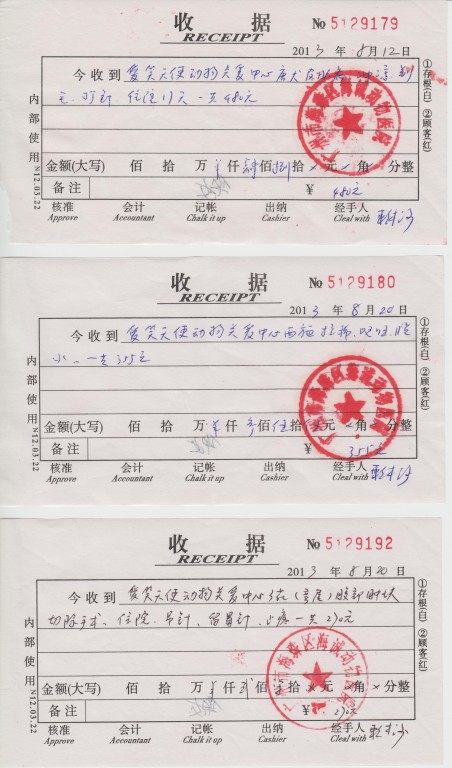 收 据
RECEIPT
№ 5129179
2013 年 8 月 12 日
今收到 爱笑天使动物关爱中心
毛、打针 住院17天 一共480元
金额(大写) 佰 拾 万 仟 肆佰 捌拾 元 角 分整
备 注 ¥ 480元
核准 会计 记帐 出纳 经手人
Approve Accountant Chalk it up Cashier Cleal with
内部使用 N12.03.22
①存根(白) ②顾客(红)
广州市海珠区海诚动物医院
收 据
RECEIPT
№ 5129180
2013 年 8 月 20 日
今收到 爱笑天使动物关爱中心
一共355元
金额(大写) 佰 拾 万 仟 佰 伍拾 元 角 分整
备 注 ¥ 355元
核准 会计 记帐 出纳 经手人
Approve Accountant Chalk it up Cashier Cleal with
内部使用 N12.03.22
①存根(白) ②顾客(红)
广州市海珠区海诚动物医院
收 据
RECEIPT
№ 5129192
2013 年 8 月 20 日
今收到 爱笑天使动物关爱中心
切除手术、住院、吊针、留置针、止疼 一共270元
金额(大写) 佰 拾 万 仟 贰佰 拾 元 角 分整
备 注 ¥ 270元
核准 会计 记帐 出纳 经手人
Approve Accountant Chalk it up Cashier Cleal with
内部使用 N12.03.22
①存根(白) ②顾客(红)
广州市海珠区海诚动物医院